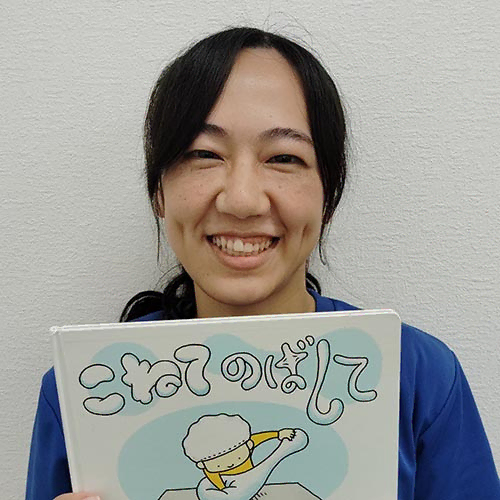 こねてのばして